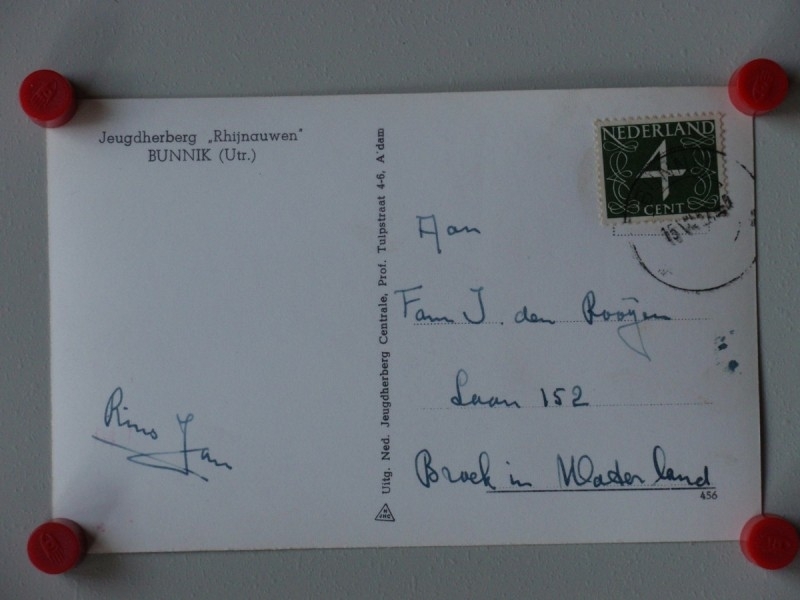 Jeugdherberg „Rhijnauwen"
BUNNIK (Utr.)
Rino Jan
Uitg. Ned. Jeugdherberg Centrale, Prof. Tulpstraat 4-6, A'dam
NEDERLAND
4
CENT
Aan
Fam J. den Rooÿen
Laan 152
Broek in Waterland
456